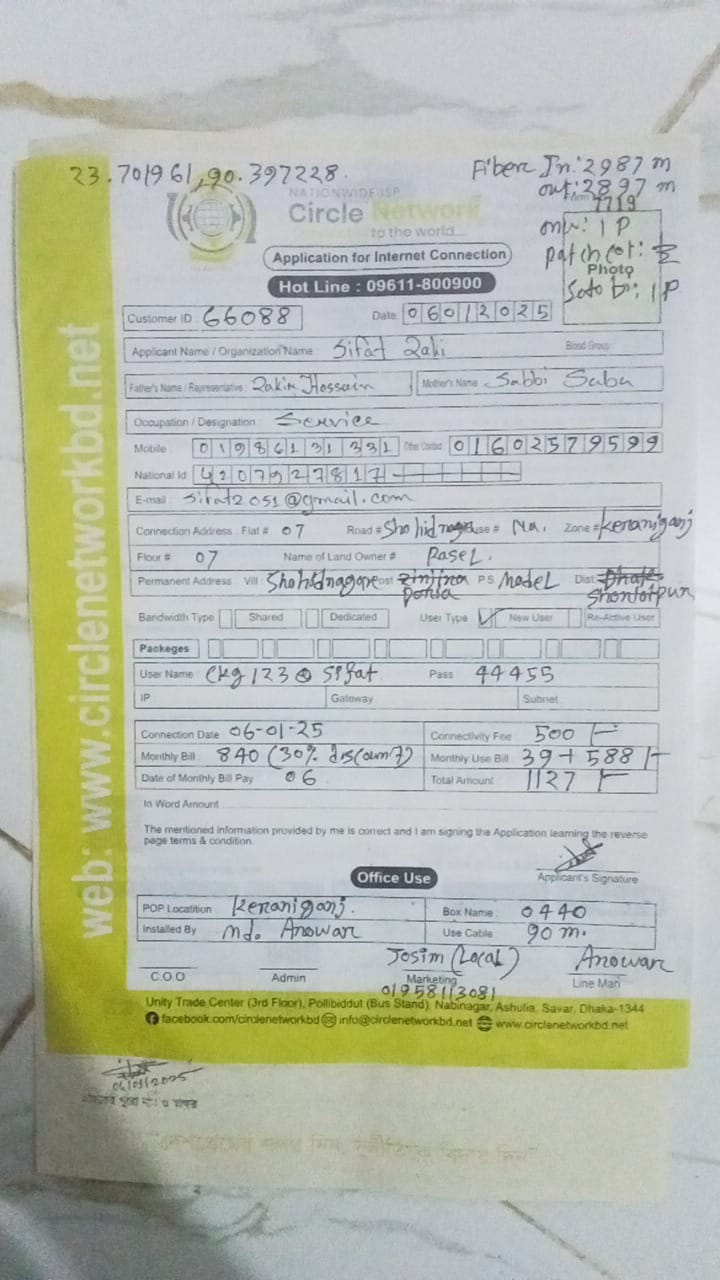 23.701961,90.397228.
Fiber In: 2987 m
out: 2897 m
7719
NATIONWIDE ISP
Circle Network
to the world...
onu: 1 P
Patch cot:
Photo
1 P
Application for Internet Connection
Hot Line : 09611-800900
Customer ID 66088 Date 06012025
Applicant Name / Organization Name Sifat Blood Group
Father's Name / Representative Hossain Mother's Name Sabbi Saba
Occupation / Designation Service
Mobile 01986131331 Other Contact 01602579599
National Id 4207927817
E-mail sifat2051@gmail.com
Connection Address : Flat # 07 Road # Shohidnagar House # Na. Zone # Keraniganj
Floor # 07 Name of Land Owner # Rasel.
Permanent Address Vill Shohidnagar Post P.S Model Dist
Bandwidth Type Shared Dedicated User Type ✓ New User Re-Active User
Packeges
User Name : Ckg123@Sifat Pass 44455
IP Gateway Subnet
Connection Date 06-01-25 Connectivity Fee 500/-
Monthly Bill 840 (30% discount) Monthly Use Bill 39+588/-
Date of Monthly Bill Pay 06 Total Amount 1127/-
In Word Amount
The mentioned information provided by me is correct and I am signing the Application learning the reverse
page terms & condition.
Applicant's Signature
Office Use
POP Locatition Keraniganj. Box Name 0440
Installed By Md. Anowar Use Cable 90 m.
Josim (Local) Anowar
C.O.O Admin Marketing Line Man
01958113081
Unity Trade Center (3rd Floor), Pollibiddut (Bus Stand), Nabinagar, Ashulia, Savar, Dhaka-1344
facebook.com/circlenetworkbd info@circlenetworkbd.net www.circlenetworkbd.net
web: www.circlenetworkbd.net